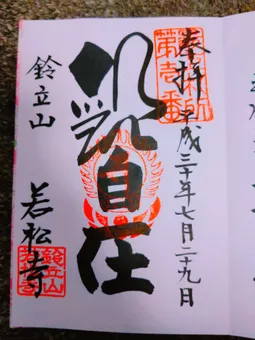 奉拝
平成三十年七月二十九日
第壱番
自在
鈴立山
若松寺
鈴立山